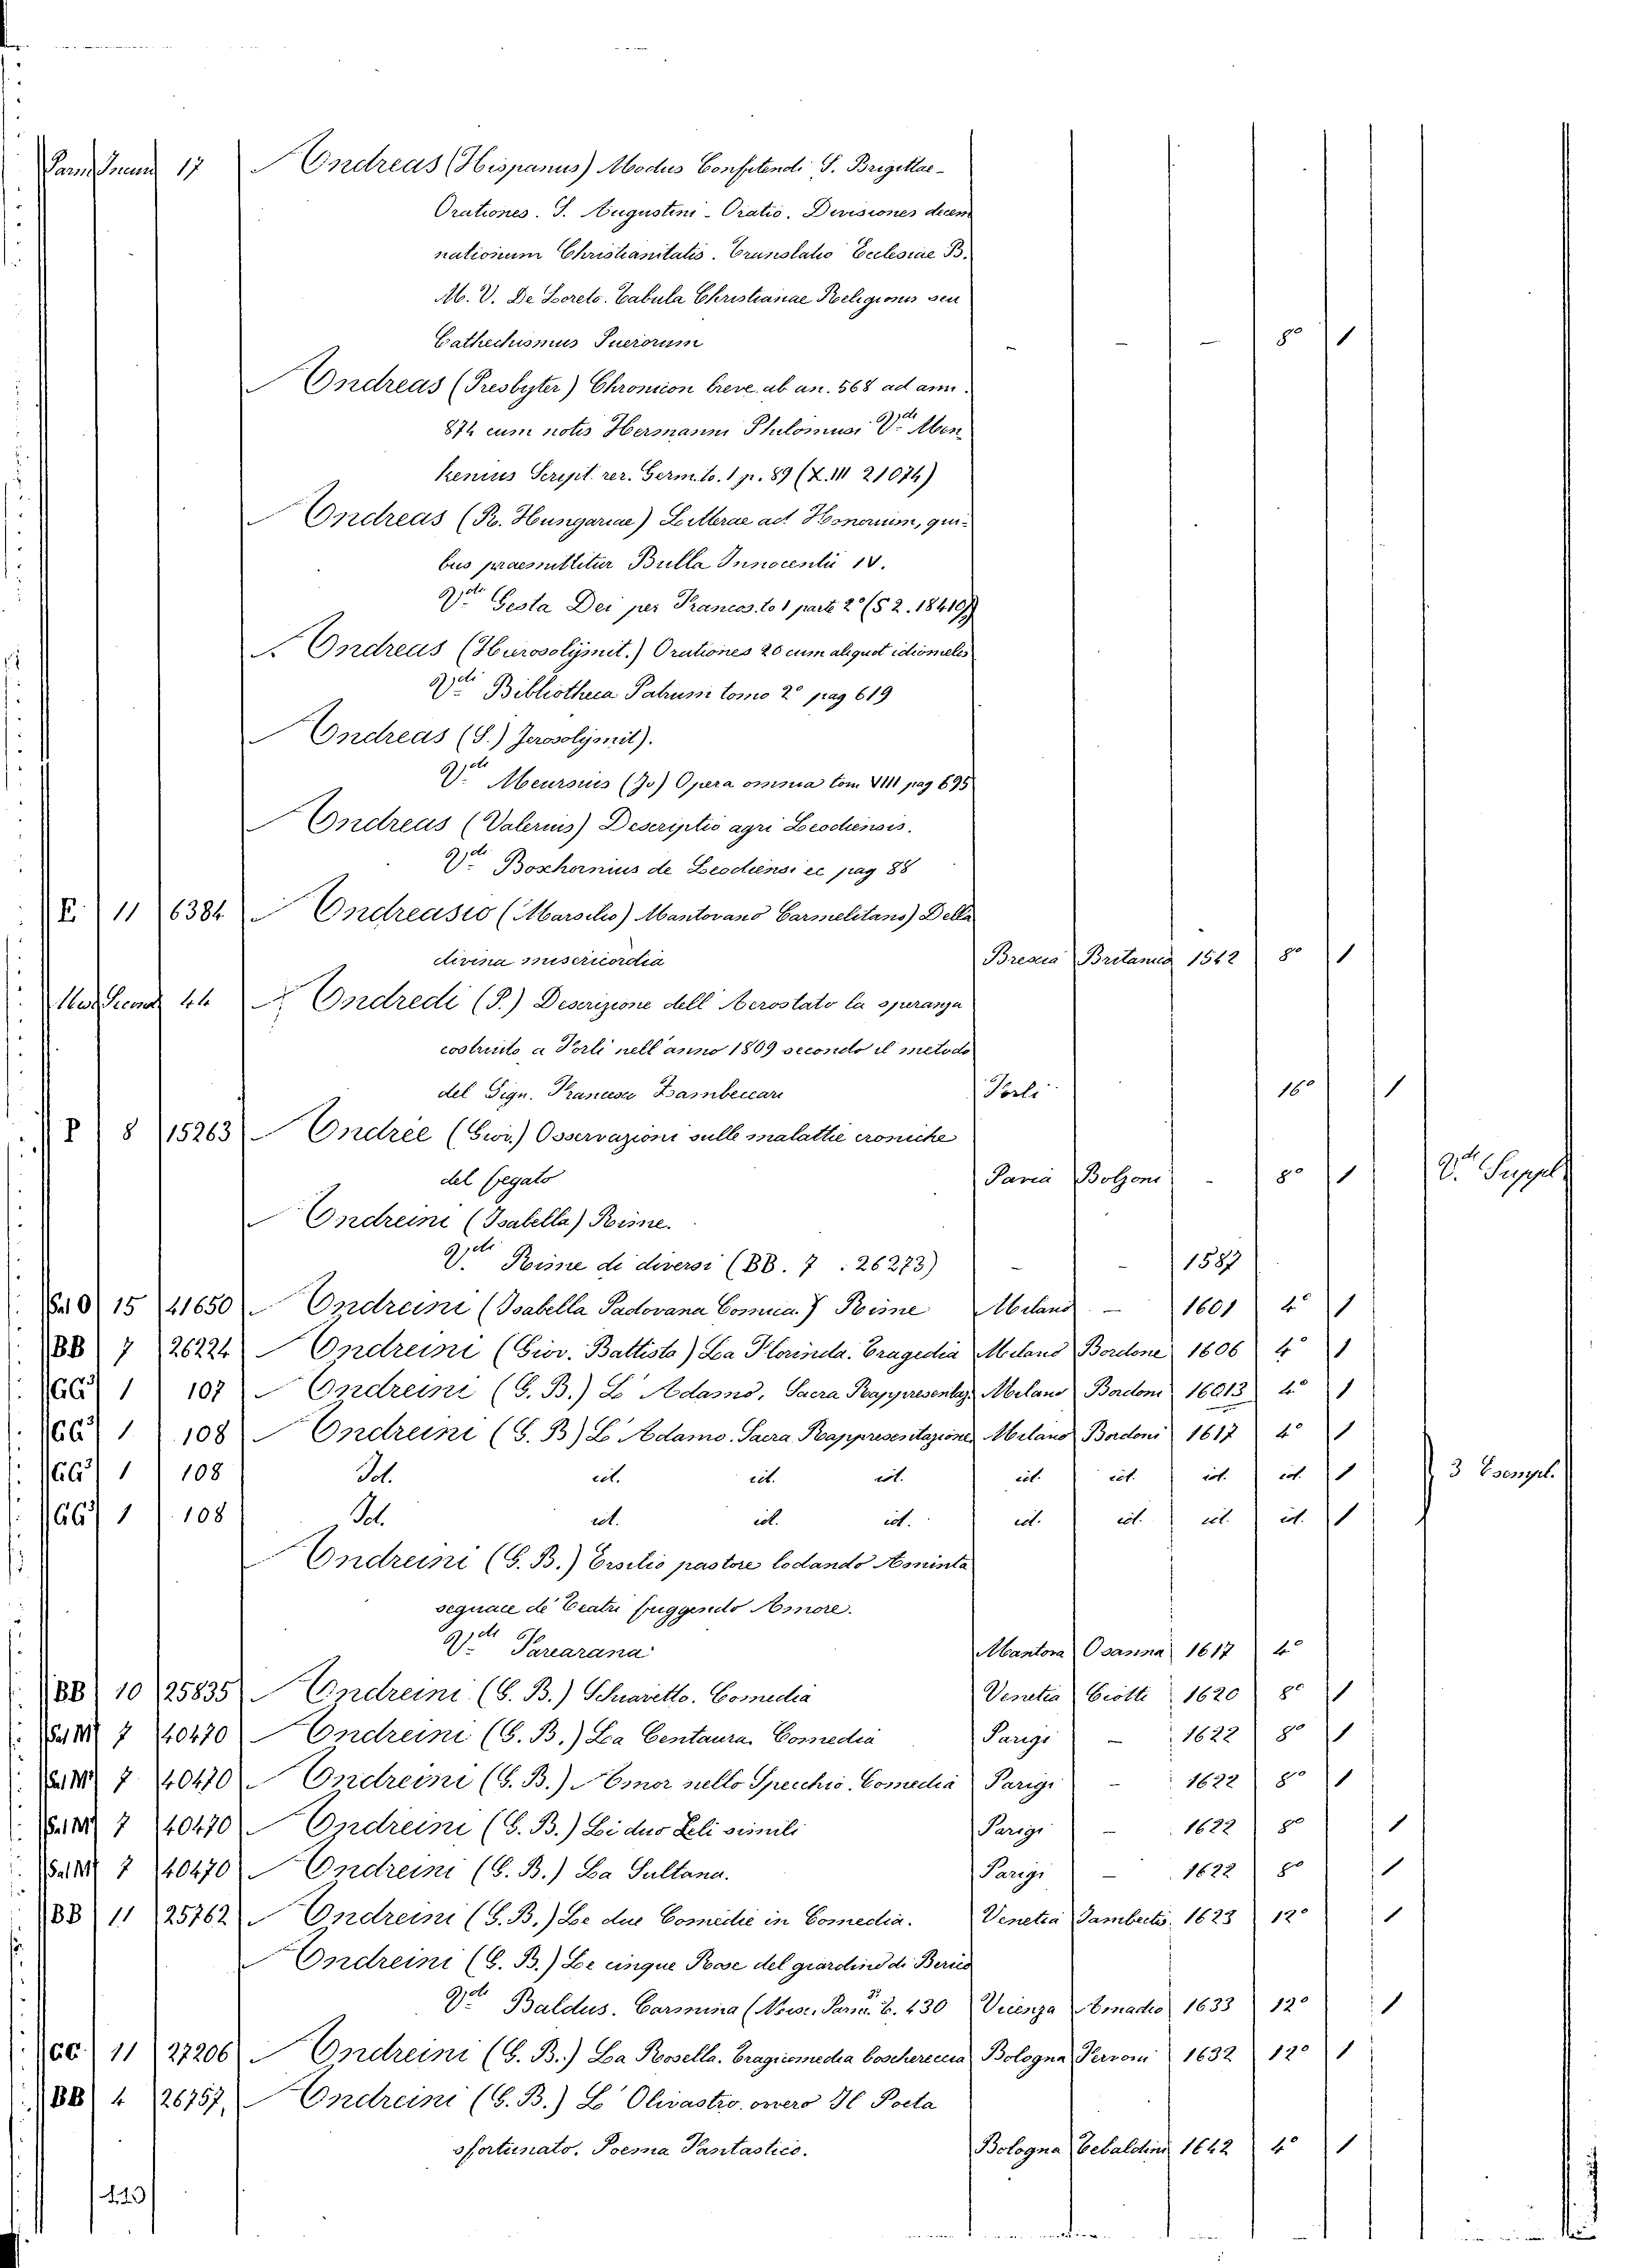 17 Andreas (Hispanus) Modus Confitendi, S. Brigittae-
Orationes. S. Augustini - Oratio. Divisiones decem
nationum Christianitatis. Translatio Ecclesiae B.
M. V. De Loreto. Tabula Christianae Religionis seu
Cathechismus Puerorum - - - 8° 1
Andreas (Presbyter) Chronicon breve ab an. 568 ad ann.
874 cum notis Hermanni Philomusi Vdi Men
kenius Script. rer. Germ. to. 1 p. 89 (Z. III 21074)
Andreas (R. Hungariae) Litterae ad Honorium, qui-
bus praemittitur Bulla Innocentii IV.
Vdi Gesta Dei per Francos. to 1 parte 2° (S 2. 18410)
Andreas (Hierosolijmit.) Orationes 20 cum aliquot idiomelis
Vdi Bibliotheca Patrum tomo 2° pag 619
Andreas (S.) Jerosolijmit).
Vdi Meursius (Jo) Opera omnia tom VIII pag 695
Andreas (Valerius) Descriptio agri Leodiensis.
Vdi Boxhornius de Leodiensi ec pag 88
E. 11 6384 Andreasio (Marsilio) Mantovano Carmelitano) Della
divina misericordia Brescia Britanico 1542 8° 1
44 Andredi (P.) Descrizione dell' Aerostato la speranza
costruito a Forlì nell'anno 1809 secondo il metodo
del Sign. Francesco Zambeccari Forlì 16° 1
P 8 15263 Andrée (Giov.) Osservazioni sulle malattie croniche
del fegato Pavia Bolzoni - 8° 1 Vdi Suppl
Andreini (Isabella) Rime.
Vdi Rime di diversi (BB. 7 . 26273) - - 1587
15 41650 Andreini (Isabella Padovana Comica.) Rime Milano - 1601 4° 1
BB 7 26224 Andreini (Giov. Battista) La Florinda. Tragedia Milano Bordone 1606 4° 1
1 107 Andreini (G. B.) L'Adamo, Sacra Rappresentaz. Milano Bordoni 16013 4° 1
1 108 Andreini (G. B) L'Adamo. Sacra Rappresentazione Milano Bordoni 1617 4° 1
1 108 Id. id. id. id. id. id. id. id. 1 3 Esempl.
1 108 Id. id. id. id. id. id. id. id. 1
Andreini (G. B.) Ersilio pastore lodando Aminta
seguace de' Teatri fuggendo Amore.
Vdi Parearana Mantova Osanna 1617 4°
BB 10 25835 Andreini (G. B.) Schiavetto. Comedia Venetia Ciotti 1620 8° 1
7 40470 Andreini (G. B.) La Centaura. Comedia Parigi - 1622 8° 1
7 40470 Andreini (G. B.) Amor nello Specchio. Comedia Parigi - 1622 8° 1
7 40470 Andreini (G. B.) Li duo Leli simili Parigi - 1622 8° 1
7 40470 Andreini (G. B.) La Sultana. Parigi - 1622 8° 1
BB 11 25762 Andreini (G. B.) Le due Comedie in Comedia. Venetia 1623 12° 1
Andreini (G. B.) Le cinque Rose del giardino di Berico
Vdi Baldus. Carmina 430 Vicenza Amadio 1633 12° 1
CC. 11 27206 Andreini (G. B.) La Rosella. Tragicomedia boschereccia Bologna Ferroni 1632 12° 1
BB 4 26757, Andreini (G. B.) L'Olivastro. overo Il Poeta
sfortunato. Poema Fantastico. Bologna Tebaldini 1642 4° 1